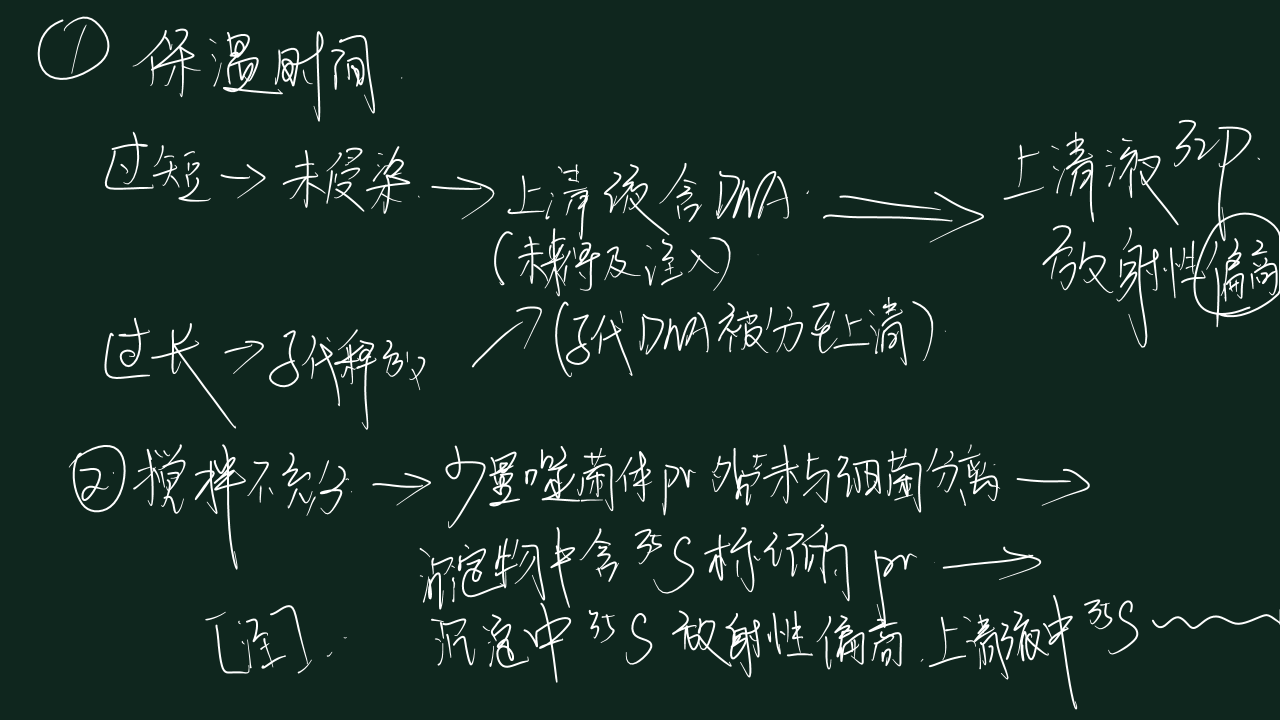 ① 保温时间
过短 → 未侵染 → 上清液含DNA ⟹ 上清液 ³²P
(未来得及注入) 放射性偏高
过长 → 子代释放 ↗ (子代DNA被分至上清)
② 搅拌不充分 → 少量噬菌体pr外壳未与细菌分离 →
沉淀物中含 ³⁵S 标记的 pr →
[注]. 沉淀中 ³⁵S 放射性偏高. 上清液中 ³⁵S